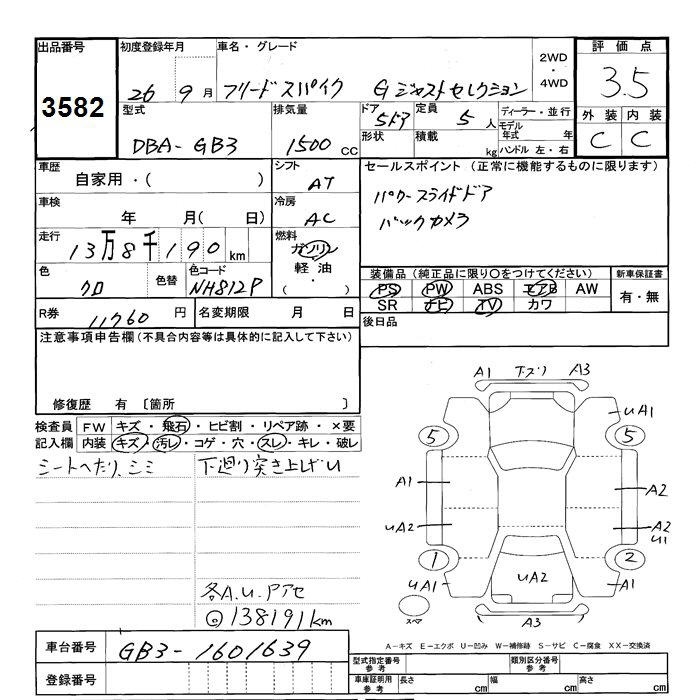 出品番号
3582
初度登録年月
26 9 月
車名・グレード
フリードスパイク Gジャストセレクション
2WD
・
4WD
評価点
3.5
外装 内装
C C
型式
DBA-GB3
排気量
1500 CC
ドア
5ドア
形状
定員
5 人
積載
kg
ディーラー・並行
モデル年式 年
ハンドル 左・右
車歴
自家用・( )
シフト
AT
セールスポイント(正常に機能するものに限ります)
パワースライドドア
バックカメラ
車検
年 月( 日)
冷房
AC
走行
13万8千190 km
燃料
ガソリン
軽油
・
( )
色
クロ
色替
色コード
NH812P
装備品(純正品に限り○をつけてください)
PS PW ABS エアB AW
SR ナビ TV カワ
新車保証書
有・無
R券
11760 円
名変期限 月 日
後日品
注意事項申告欄(不具合内容等は具体的に記入して下さい)
修復歴 有〔箇所 〕
検査員
記入欄
FW キズ・飛石・ヒビ割・リペア跡・×要
内装 キズ・汚レ・コゲ・穴・スレ・キレ・破レ
シートヘたり、シミ
下廻り突き上げU
各A.U.Pアセ
◎138191km
A1 下スリ A3
UA1
5 5
A1 A2
UA2 A2
U1
1 2
UA1 UA2 A1
スペア
A3
A-キズ E-エクボ U-凹み W-補修跡 S-サビ C-腐食 XX-交換済
車台番号
GB3-1601639
登録番号
型式指定番号
参考
類別区分番号
参考
車庫証明用
参考
長さ cm
幅 cm
高さ cm